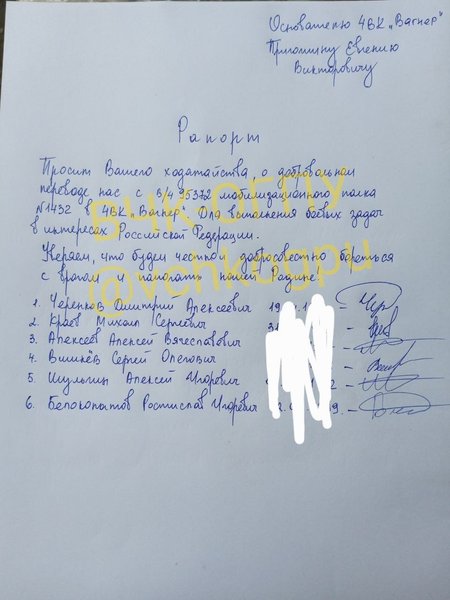 Основателю ЧВК „Вагнер"
Пригожину Евгению
Викторовичу
Рапорт
Просим Вашего ходатайства, о добровольном
переводе нас с в/ч 95372 мобилизационного полка
№1432 в ЧВК „Вагнер". Для выполнения боевых задач
в интересах Российской Федерации.
Уверяем, что будем честно и добросовестно бороться
с врагом и помогать нашей Родине!
1. Черепков Дмитрий Алексеевич 19
2. Краев Михаил Сергеевич
3. Алексеев Алексей Вячеславович
4. Вишнёв Сергей Олегович
5. Шульгин Алексей Игоревич
6. Белокопытов Ростислав Игоревич
ВЧК-ОГПУ
@vchkogpu